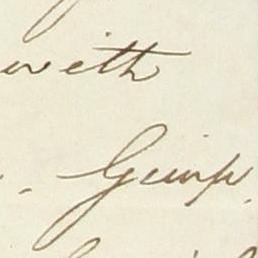 with
Guinp.